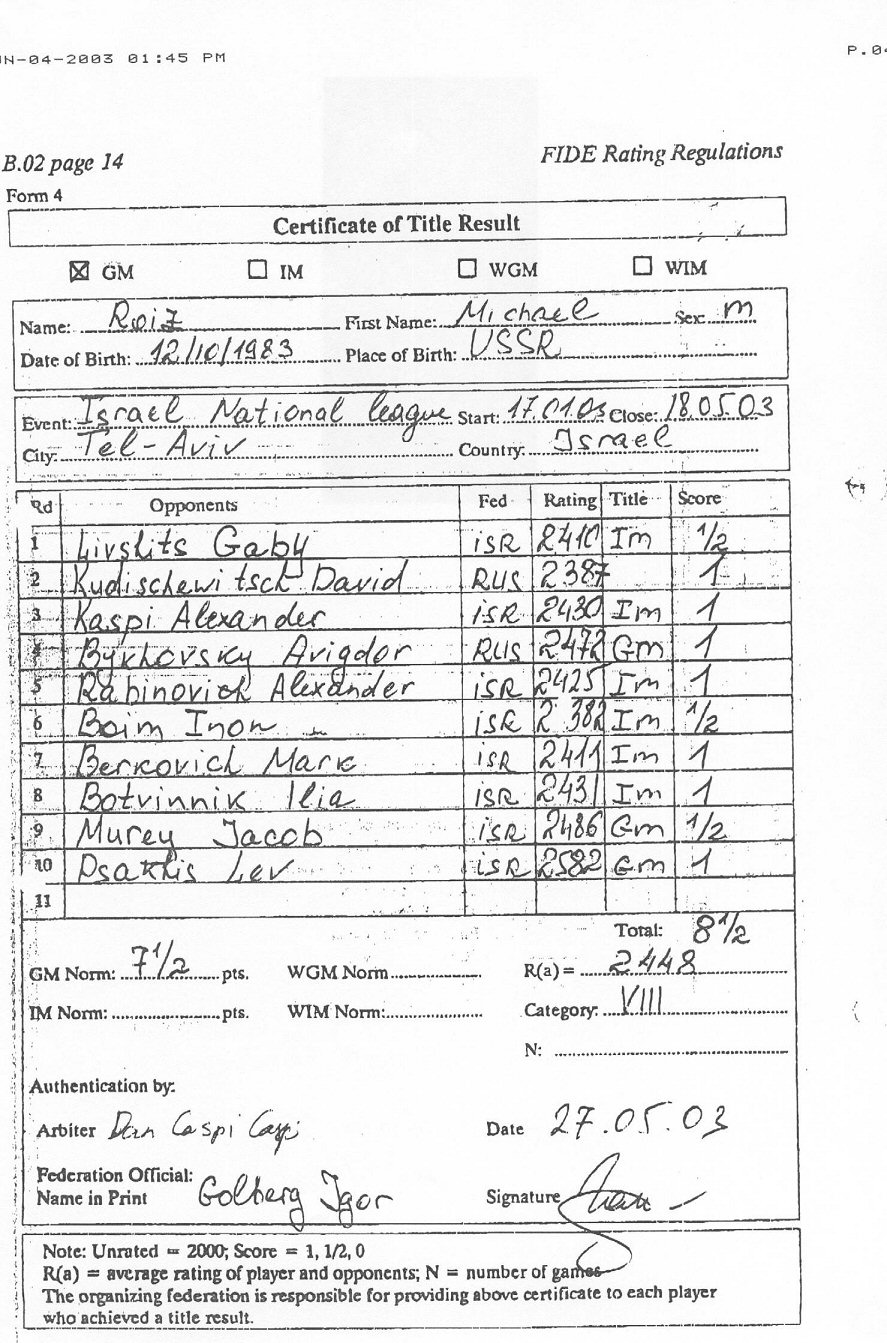 N-04-2003 01:45 PM P.04
B.02 page 14 FIDE Rating Regulations
Form 4
Certificate of Title Result
☒ GM ☐ IM ☐ WGM ☐ WIM
Name: Roiz First Name: Michael Sex: m
Date of Birth: 12/10/1983 Place of Birth: USSR
Event: Israel National league Start: 17.01.03 Close: 18.05.03
City: Tel-Aviv Country: Israel
Rd Opponents Fed Rating Title Score
1 Livshits Gaby isR 2410 Im 1/2
2 Kudischewitsch David RUS 2387 1
3 Kaspi Alexander isR 2430 Im 1
4 Bykhovsky Avigdor RUS 2472 Gm 1
5 Rabinovich Alexander isR 2425 Im 1
6 Boim Inon isR 2382 Im 1/2
7 Berkovich Mark isR 2411 Im 1
8 Botvinnik Ilia isR 2431 Im 1
9 Murey Jacob isR 2486 Gm 1/2
10 Psakhis Lev isR 2582 Gm 1
11
Total: 8 1/2
GM Norm: 7 1/2 pts. WGM Norm R(a) = 2448
IM Norm: pts. WIM Norm: Category: VIII
N:
Authentication by:
Arbiter Dan Caspi Date 27.05.03
Federation Official:
Name in Print Golberg Igor Signature
Note: Unrated = 2000; Score = 1, 1/2, 0
R(a) = average rating of player and opponents; N = number of games
The organizing federation is responsible for providing above certificate to each player
who achieved a title result.